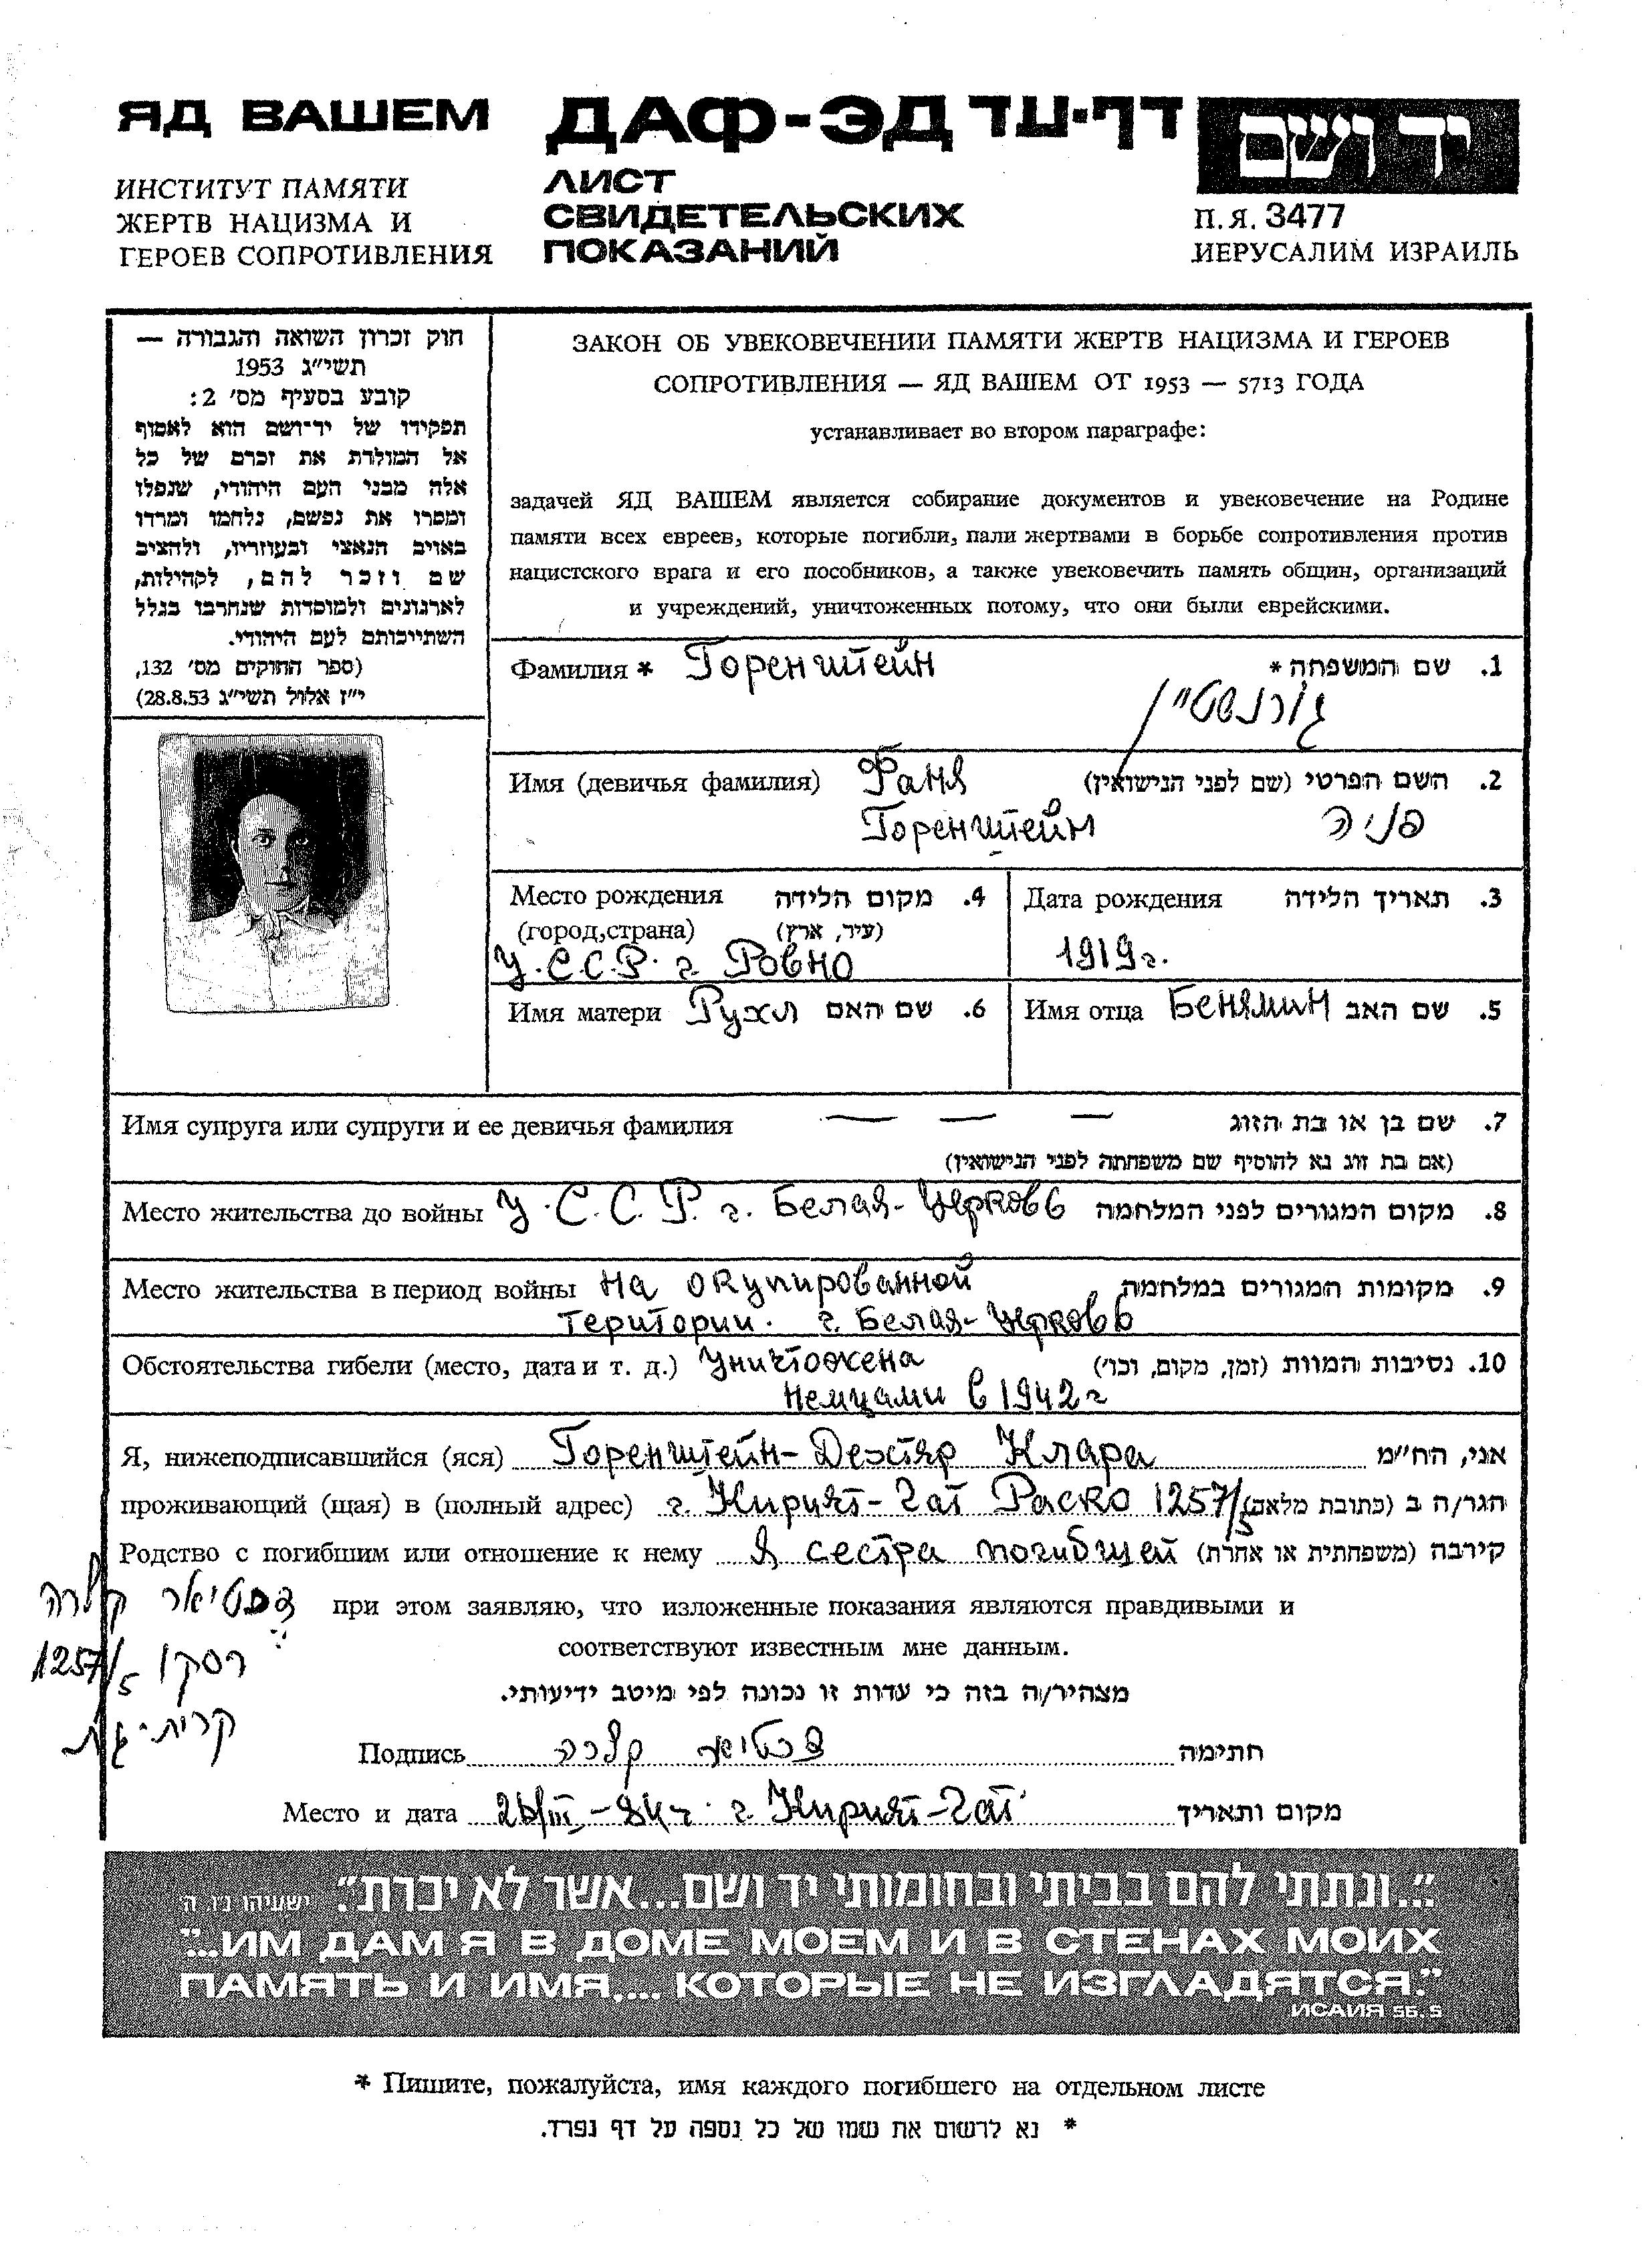 ЯД ВАШЕМ
ИНСТИТУТ ПАМЯТИ
ЖЕРТВ НАЦИЗМА И
ГЕРОЕВ СОПРОТИВЛЕНИЯ
ДАФ-ЭД דף-עד
ЛИСТ
СВИДЕТЕЛЬСКИХ
ПОКАЗАНИЙ
יד ושם
П.Я. 3477
ИЕРУСАЛИМ ИЗРАИЛЬ
חוק זכרון השואה והגבורה —
תשי״ג 1953
קובע בסעיף מס׳ 2:
תפקידו של יד־ושם הוא לאסוף
אל המולדת את זכרם של כל
אלה מבני העם היהודי, שנפלו
ומסרו את נפשם, נלחמו ומרדו
באויב הנאצי ובעוזריו, ולהציב
שם וזכר להם, לקהילות,
לארגונים ולמוסדות שנחרבו בגלל
השתייכותם לעם היהודי.
(ספר החוקים מס׳ 132,
י״ז אלול תשי״ג 28.8.53)
ЗАКОН ОБ УВЕКОВЕЧЕНИИ ПАМЯТИ ЖЕРТВ НАЦИЗМА И ГЕРОЕВ
СОПРОТИВЛЕНИЯ — ЯД ВАШЕМ ОТ 1953 — 5713 ГОДА
устанавливает во втором параграфе:
задачей ЯД ВАШЕМ является собирание документов и увековечение на Родине
памяти всех евреев, которые погибли, пали жертвами в борьбе сопротивления против
нацистского врага и его пособников, а также увековечить память общин, организаций
и учреждений, уничтоженных потому, что они были еврейскими.
Фамилия * Горенштейн 1. שם המשפחה *
גורנשטיין
Имя (девичья фамилия) Фаня 2. השם הפרטי (שם לפני הנישואין)
Горенштейн פניה
Место рождения 4. מקום הלידה
(город,страна) (עיר, ארץ)
У.С.С.Р. г. Ровно
Дата рождения 3. תאריך הלידה
1919г.
Имя матери Рухл 6. שם האם
Имя отца Бенямин 5. שם האב
Имя супруга или супруги и ее девичья фамилия — — — 7. שם בן או בת הזוג
(אם בת זוג נא להוסיף שם משפחתה לפני הנישואין)
Место жительства до войны У.С.С.Р. г. Белая-Церковь 8. מקום המגורים לפני המלחמה
Место жительства в период войны на окупированной 9. מקומות המגורים במלחמה
територии. г. Белая-Церковь
Обстоятельства гибели (место, дата и т. д.) Уничтожена 10. נסיבות המוות (זמן, מקום, וכו׳)
немцами в 1942г
Я, нижеподписавшийся (яся) Горенштейн-Дехтяр Клара אני, הח״מ
проживающий (щая) в (полный адрес) г. Кирият-Гат Раско 1257/5 הגר/ה ב (כתובת מלאה)
Родство с погибшим или отношение к нему я сестра погибшей קירבה (משפחתית או אחרת)
при этом заявляю, что изложенные показания являются правдивыми и
соответствуют известным мне данным.
מצהיר/ה בזה כי עדות זו נכונה לפי מיטב ידיעותי.
קלרה
רסקו 1257/5
קרית-גת
Подпись קלרה חתימה
Место и дата г. Кирият-Гат מקום ותאריך
״...ונתתי להם בביתי ובחומותי יד ושם...אשר לא יכרת״. ישעיהו נ״ו ה׳
"...ИМ ДАМ Я В ДОМЕ МОЕМ И В СТЕНАХ МОИХ
ПАМЯТЬ И ИМЯ.... КОТОРЫЕ НЕ ИЗГЛАДЯТСЯ."
ИСАИЯ 56..5
* Пишите, пожалуйста, имя каждого погибшего на отдельном листе
* נא לרשום את שמו של כל נספה על דף נפרד.